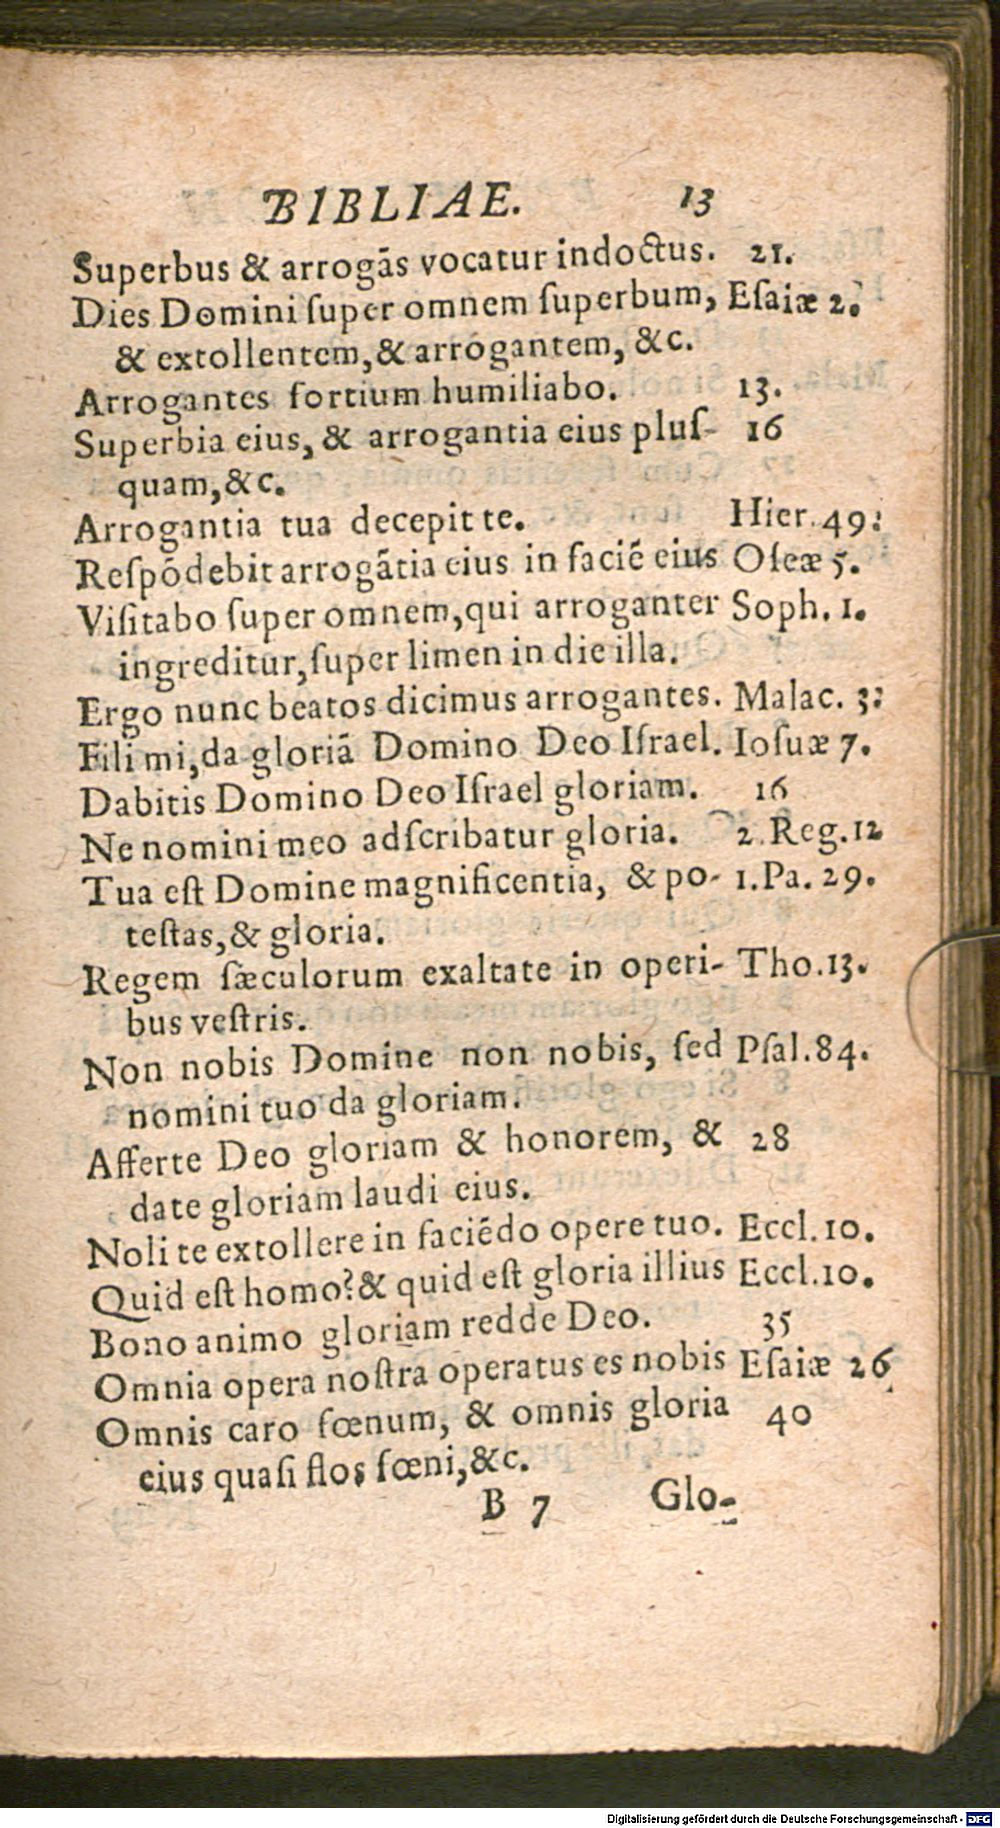 BIBLIAE. 13
Superbus & arrogãs vocatur indoctus. 21.
Dies Domini ſuper omnem ſuperbum, Eſaiæ 2.
& extollentem, & arrogantem, &c.
Arrogantes fortium humiliabo. 13.
Superbia eius, & arrogantia eius pluſ- 16
quam, &c.
Arrogantia tua decepit te. Hier. 49:
Reſpõdebit arrogãtia eius in faciẽ eius Oſeæ 5.
Viſitabo ſuper omnem, qui arroganter Soph. 1.
ingreditur, ſuper limen in die illa.
Ergo nunc beatos dicimus arrogantes. Malac. 3:
Fili mi, da gloriã Domino Deo Iſrael. Ioſuæ 7.
Dabitis Domino Deo Iſrael gloriam. 16
Ne nomini meo adſcribatur gloria. 2. Reg. 12
Tua eſt Domine magnificentia, & po- 1. Pa. 29.
teſtas, & gloria.
Regem ſæculorum exaltate in operi- Tho. 13.
bus veſtris.
Non nobis Domine non nobis, ſed Pſal. 84.
nomini tuo da gloriam.
Afferte Deo gloriam & honorem, & 28
date gloriam laudi eius.
Noli te extollere in faciẽdo opere tuo. Eccl. 10.
Quid eſt homo? & quid eſt gloria illius Eccl. 10.
Bono animo gloriam redde Deo. 35
Omnia opera noſtra operatus es nobis Eſaiæ 26
Omnis caro fœnum, & omnis gloria 40
eius quaſi flos fœni, &c.
B 7 Glo-
Digitalisierung gefördert durch die Deutsche Forschungsgemeinschaft - DFG